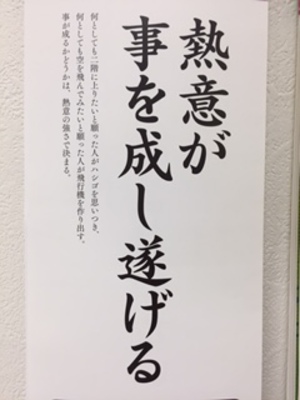 熱意が
事を成し遂げる
何としても二階に上りたいと願った人がハシゴを思いつき、
何としても空を飛んでみたいと願った人が飛行機を作り出す。
事が成るかどうかは、熱意の強さで決まる。